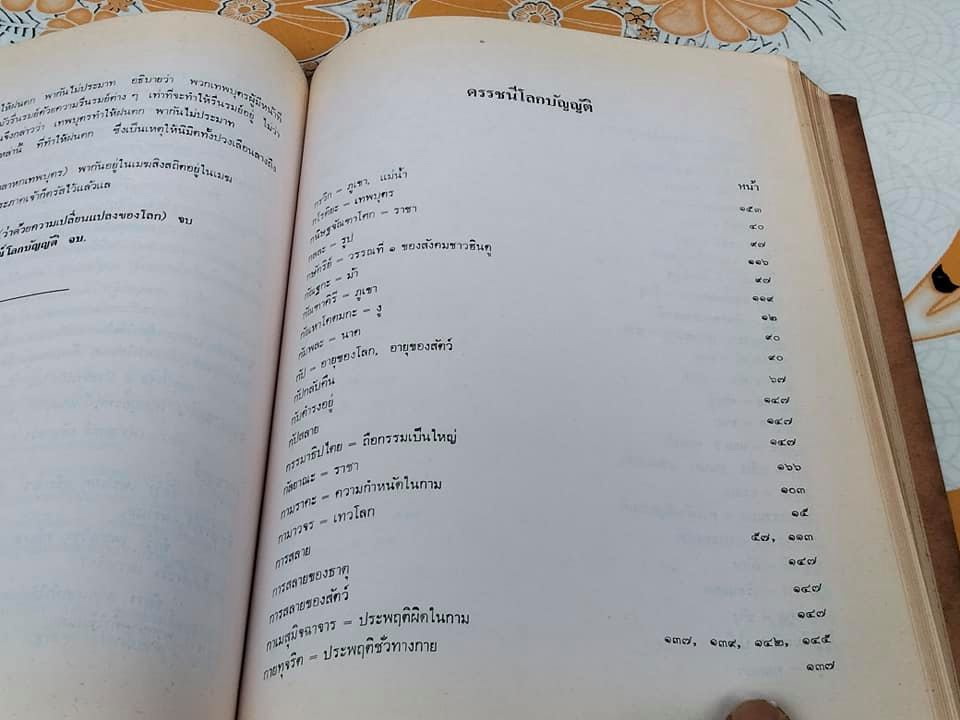 ให้ฝนตก พากันไม่ประมาท อธิบายว่า พวกเทพบุตรผู้มีหน้าที่
มัวรื่นรมย์ด้วยความรื่นรมย์ต่าง ๆ เท่าที่จะทำให้รื่นรมย์อยู่ ไม่ว่า
จึงกล่าวว่า เทพบุตรทำให้ฝนตก พากันไม่ประมาท
เหล่านี้ ที่ทำให้ฝนตก ซึ่งเป็นเหตุให้นิมิตทั้งปวงเลือนลางถึง
ลาหกเทพบุตร) พากันอยู่ในเมฆสิงสถิตอยู่ในเมฆ
ระภาคเจ้าก็ตรัสไว้แล้วแล
(ว่าด้วยความเปลี่ยนแปลงของโลก) จบ
โลกบัญญัติ จบ.
ดรรชนีโลกบัญญัติ
หน้า
กรวีก = ภูเขา, แม่น้ำ ๑๕๓
กโรติยะ = เทพบุตร ๔๐
กนิษฐจัณฑาโศก = ราชา ๙๗
กลละ = รูป ๑๑๖
กษัตริย์ = วรรณที่ ๑ ของสังคมชาวฮินดู ๙๗
กัณฐกะ = ม้า ๑๑๙
กัณฑาคีรี = ภูเขา ๑๒
กัณหาโคตมกะ = งู ๙๐
กัมพละ = นาค ๙๐
กัป = อายุของโลก, อายุของสัตว์ ๖๗
กัปกลับคืน ๑๔๗
กัปดำรงอยู่ ๑๔๗
กัปสลาย ๑๔๗
กรรมาธิปไตย = ถือกรรมเป็นใหญ่ ๑๖๖
กัลยาณะ = ราชา ๑๐๓
กามราคะ = ความกำหนัดในกาม ๑๕
กามาวจร = เทวโลก ๕๗, ๑๑๓
การสลาย ๑๔๗
การสลายของธาตุ ๑๔๗
การสลายของสัตว์ ๑๔๗
กาเมสุมิจฉาจาร = ประพฤติผิดในกาม ๑๓๗, ๑๓๙, ๑๔๒, ๑๔๕
กายทุจริต = ประพฤติชั่วทางกาย ๑๓๗